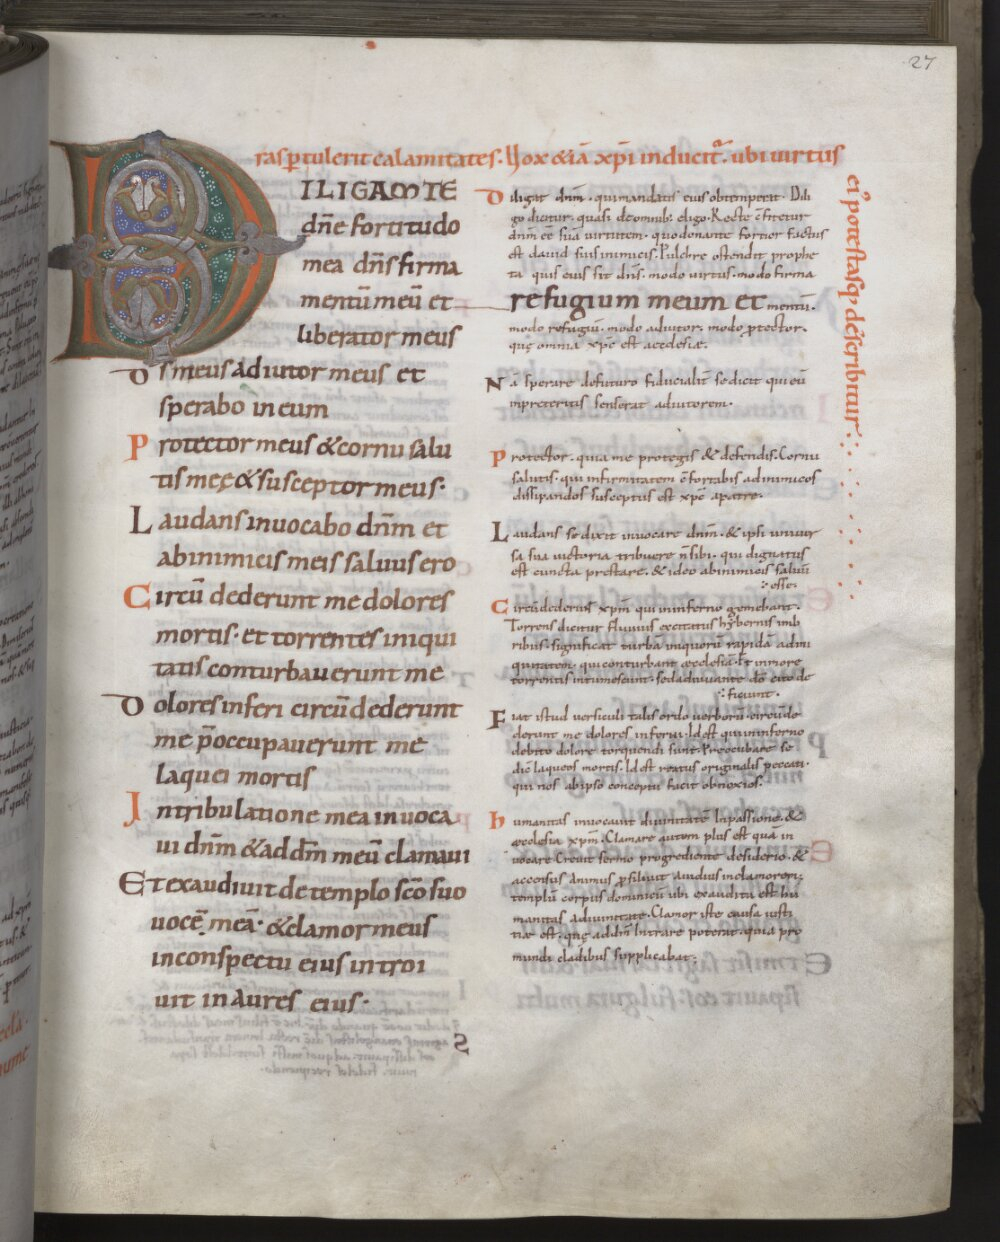 27
ras ꝑtulerit calamitates. Uox &iā xp̄i inducit᷑. ubi uirtus
ei᾽ potestasq; describitur.
DILIGAM TE
dn̄e fortitudo
mea dn̄s firma
mentū meū et
refugium meum et
liberator meus
Ds meus adiutor meus et
sperabo in eum
Protector meus & cornu salu
tis meę & susceptor meus.
Laudans inuocabo dn̄m et
ab inimicis meis saluus ero
Circū dederunt me dolores
mortis. et torrentes iniqui
tatis conturbauerunt me
Dolores inferi circū dederunt
me p̄occupauerunt me
laquei mortis
In tribulatione mea inuoca
ui dn̄m & ad dm̄ meū clamaui
Et exaudiuit de templo sc̄o suo
uocē meā. & clamor meus
in conspectu eius introi
uit in aures eius.
Diligat dn̄m. qui mandatis eius obtemperat. Dili
go dicitur. quasi de omnib; eligo. Recte c̄fitetur
dn̄m ēē suā uirtutem. quo donante fortior factus
est dauid suis inimicis. Pulchre ostendit prophe
ta quis eius sit dn̄s. modo uirtus. modo firma
mentū.
modo refugiū. modo adiutor. modo p̄tector.
quę omnia xp̄c est aecclesiae.
Nā sperare de futuro fiducialit̄ se dicit qui eū
in preteritis senserat adiutorem.
Protector. quia me protegis & defendis. Cornu
salutis. qui infirmitatem c̄fortatis ad inimicos
dissipandos susceptus est xp̄c a patre.
Laudans se dixit inuocare dn̄m. & ipsi uniuer
sa sua uictoria tribuere n̄ sibi. qui dignatus
est cuncta prestare. & ideo ab inimicis saluū
esse.
Circūdederunt xp̄m qui in inferno gemebant.
Torrens dicitur fluuius excitatus hybernis imb
ribus. significat turba iniquorū rapida
qui conturbant aecclesiā. Et in more
torrentis intumescunt. sed adiuuante dō cito de
ficiunt.
Fiat istud uersiculi talis ordo uerborū. circūde
derunt me dolores inferni. Id est qui in inferno
debito dolore torquendi sunt. Preoccupare se
dic̄ laqueos mortis. Id est reatus originalis peccati.
qui nos ab ipso conceptu facit obnoxios.
humanitas inuocauit diuinitatē in passione. &
aecclesia xp̄m. Clamare autem plus est quā in
uocare. Creuit sermo progrediente desiderio. &
accensus animus ꝓsiliuit auidius in clamorem.
templū corpus dominicū ubi exaudita est hu
manitas a diuinitate. Clamor iste causa iusti
tiae est. quę ad dn̄m intrare poterat. quia pro
mundi cladibus supplicabat.